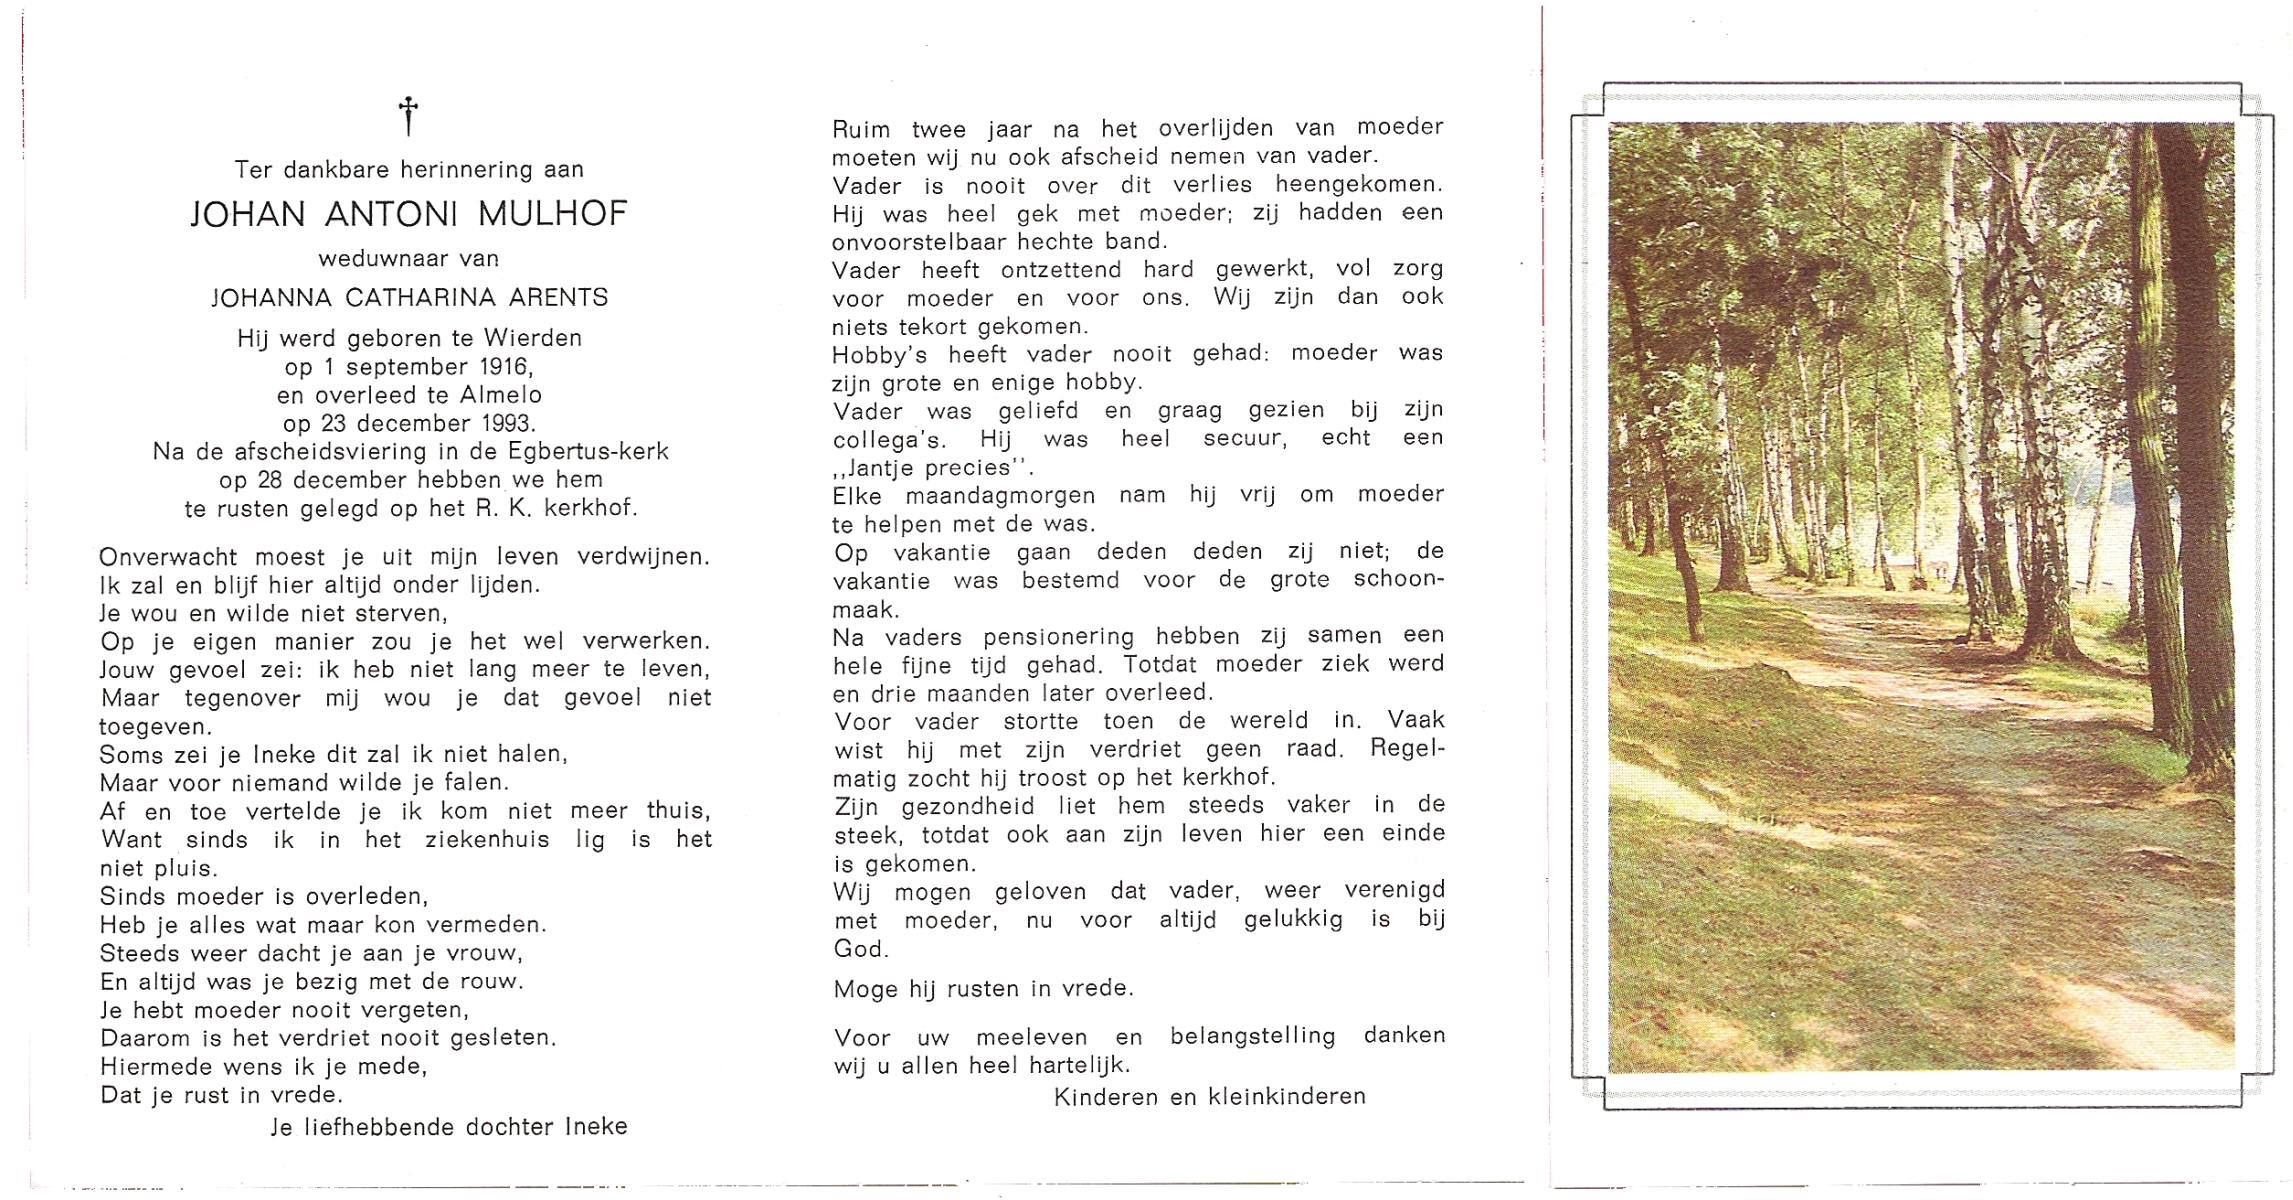 Ter dankbare herinnering aan
JOHAN ANTONI MULHOF
weduwnaar van
JOHANNA CATHARINA ARENTS
Hij werd geboren te Wierden
op 1 september 1916,
en overleed te Almelo
op 23 december 1993.
Na de afscheidsviering in de Egbertus-kerk
op 28 december hebben we hem
te rusten gelegd op het R. K. kerkhof.
Onverwacht moest je uit mijn leven verdwijnen.
Ik zal en blijf hier altijd onder lijden.
Je wou en wilde niet sterven,
Op je eigen manier zou je het wel verwerken.
Jouw gevoel zei: ik heb niet lang meer te leven,
Maar tegenover mij wou je dat gevoel niet
toegeven.
Soms zei je Ineke dit zal ik niet halen,
Maar voor niemand wilde je falen.
Af en toe vertelde je ik kom niet meer thuis,
Want sinds ik in het ziekenhuis lig is het
niet pluis.
Sinds moeder is overleden,
Heb je alles wat maar kon vermeden.
Steeds weer dacht je aan je vrouw,
En altijd was je bezig met de rouw.
Je hebt moeder nooit vergeten,
Daarom is het verdriet nooit gesleten.
Hiermede wens ik je mede,
Dat je rust in vrede.
Je liefhebbende dochter Ineke
Ruim twee jaar na het overlijden van moeder
moeten wij nu ook afscheid nemen van vader.
Vader is nooit over dit verlies heengekomen.
Hij was heel gek met moeder; zij hadden een
onvoorstelbaar hechte band.
Vader heeft ontzettend hard gewerkt, vol zorg
voor moeder en voor ons. Wij zijn dan ook
niets tekort gekomen.
Hobby's heeft vader nooit gehad: moeder was
zijn grote en enige hobby.
Vader was geliefd en graag gezien bij zijn
collega's. Hij was heel secuur, echt een
,,Jantje precies''.
Elke maandagmorgen nam hij vrij om moeder
te helpen met de was.
Op vakantie gaan deden deden zij niet; de
vakantie was bestemd voor de grote schoon-
maak.
Na vaders pensionering hebben zij samen een
hele fijne tijd gehad. Totdat moeder ziek werd
en drie maanden later overleed.
Voor vader stortte toen de wereld in. Vaak
wist hij met zijn verdriet geen raad. Regel-
matig zocht hij troost op het kerkhof.
Zijn gezondheid liet hem steeds vaker in de
steek, totdat ook aan zijn leven hier een einde
is gekomen.
Wij mogen geloven dat vader, weer verenigd
met moeder, nu voor altijd gelukkig is bij
God.
Moge hij rusten in vrede.
Voor uw meeleven en belangstelling danken
wij u allen heel hartelijk.
Kinderen en kleinkinderen